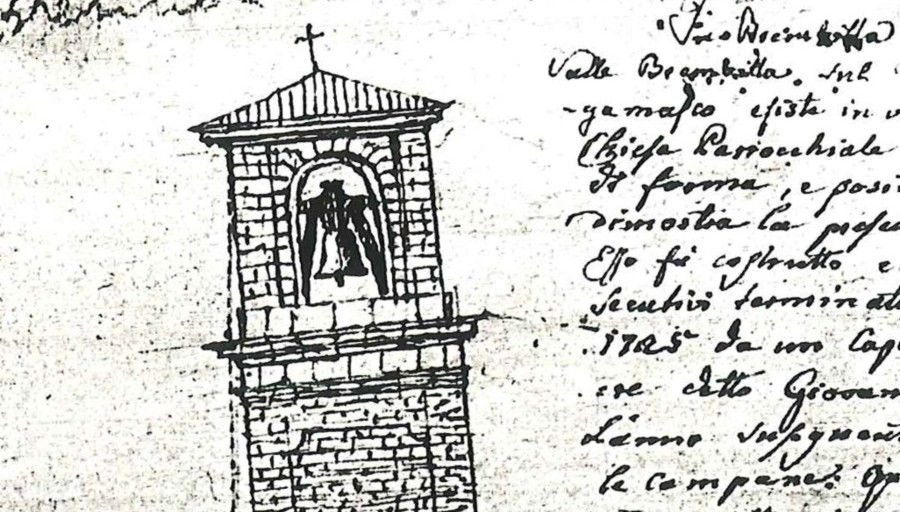 Valle Brembilla, sul
-gamasco esiste in
Chiesa Parrocchiale
di forma, e posi
dimostra la presen
Esso fù costrutto e
secutivi terminat
1725 da un Cap
re detto Giovan
l'anno susseguent
le campane: